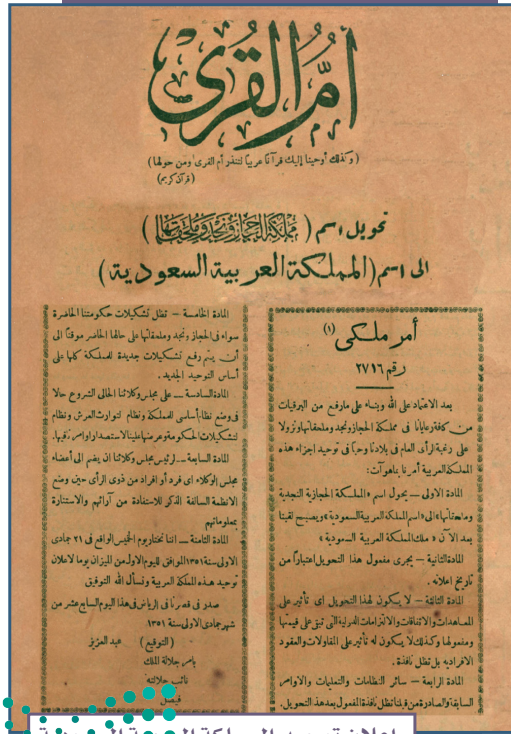 أم القرى
( وكذلك أوحينا إليك قرآنا عربيا لتنذر أم القرى ومن حولها )
( قرآن كريم )
تحويل اسم ( مملكة الحجاز ونجد وملحقاتها )
الى اسم ( المملكة العربية السعودية )
أمر ملكي (١)
رقم ٢٧١٦
بعد الاعتماد على الله وبناء على مارفع من البرقيات
من كافة رعايانا في مملكة الحجاز ونجد وملحقاتها ونزولا
على رغبة الرأى العام في بلادنا وحبا في توحيد اجزاء هذه
المملكة العربية أمرنا بما هو آت :
المادة الاولى – يحول اسم «المملكة الحجازية النجدية
وملحقاتها» الى «اسم المملكة العربية السعودية» ويصبح لقبنا
بعد الآن « ملك المملكة العربية السعودية »
المادة الثانية – يجرى مفعول هذا التحويل اعتبارا من
تاريخ اعلانه .
المادة الثالثة – لا يكون لهذا التحويل اى تأثير على
المعاهدات والاتفاقات والالتزامات الدولية التي تبقى على قيمتها
ومفعولها وكذلك لا يكون له تأثير على المقاولات والعقود
الافرادية بل تظل نافذة .
المادة الرابعة – سائر النظامات والتعليمات والاوامر
السابقة والصادرة من قبلنا تظل نافذة المفعول بعد هذا التحويل .
المادة الخامسة – تظل تشكيلات حكومتنا الحاضرة
سواء في الحجاز ونجد وملحقاتها على حالها الحاضر موقتا الى
أن يتم رفع تشكيلات جديدة للمملكة كلها على
أساس التوحيد الجديد .
المادة السادسة – على مجلس وكلائنا الحالى الشروع حالا
في وضع نظام أساسى للمملكة ونظام لتوارث العرش ونظام
لتشكيلات الحكومة وعرضها علينا لاستصدار اوامرنا فيها .
المادة السابعة – لرئيس مجلس وكلائنا ان يضم الى أعضاء
مجلس الوكلاء اى فرد أو افراد من ذوى الرأى حين وضع
الانظمة السالفة الذكر للاستفادة من آرائهم والاستنارة
بمعلوماتهم
المادة الثامنة – اننا نختار يوم الخميس الواقع في ٢١ جمادى
الاولى سنة ١٣٥١ الموافق لليوم الاول من الميزان يوما لاعلان
توحيد هذه المملكة العربية ونسأل الله التوفيق
صدر في قصرنا في الرياض في هذا اليوم السابع عشر من
شهر جمادى الاولى سنة ١٣٥١
( التوقيع ) عبد العزيز
بامر جلالة الملك
نائب جلالته
فيصل